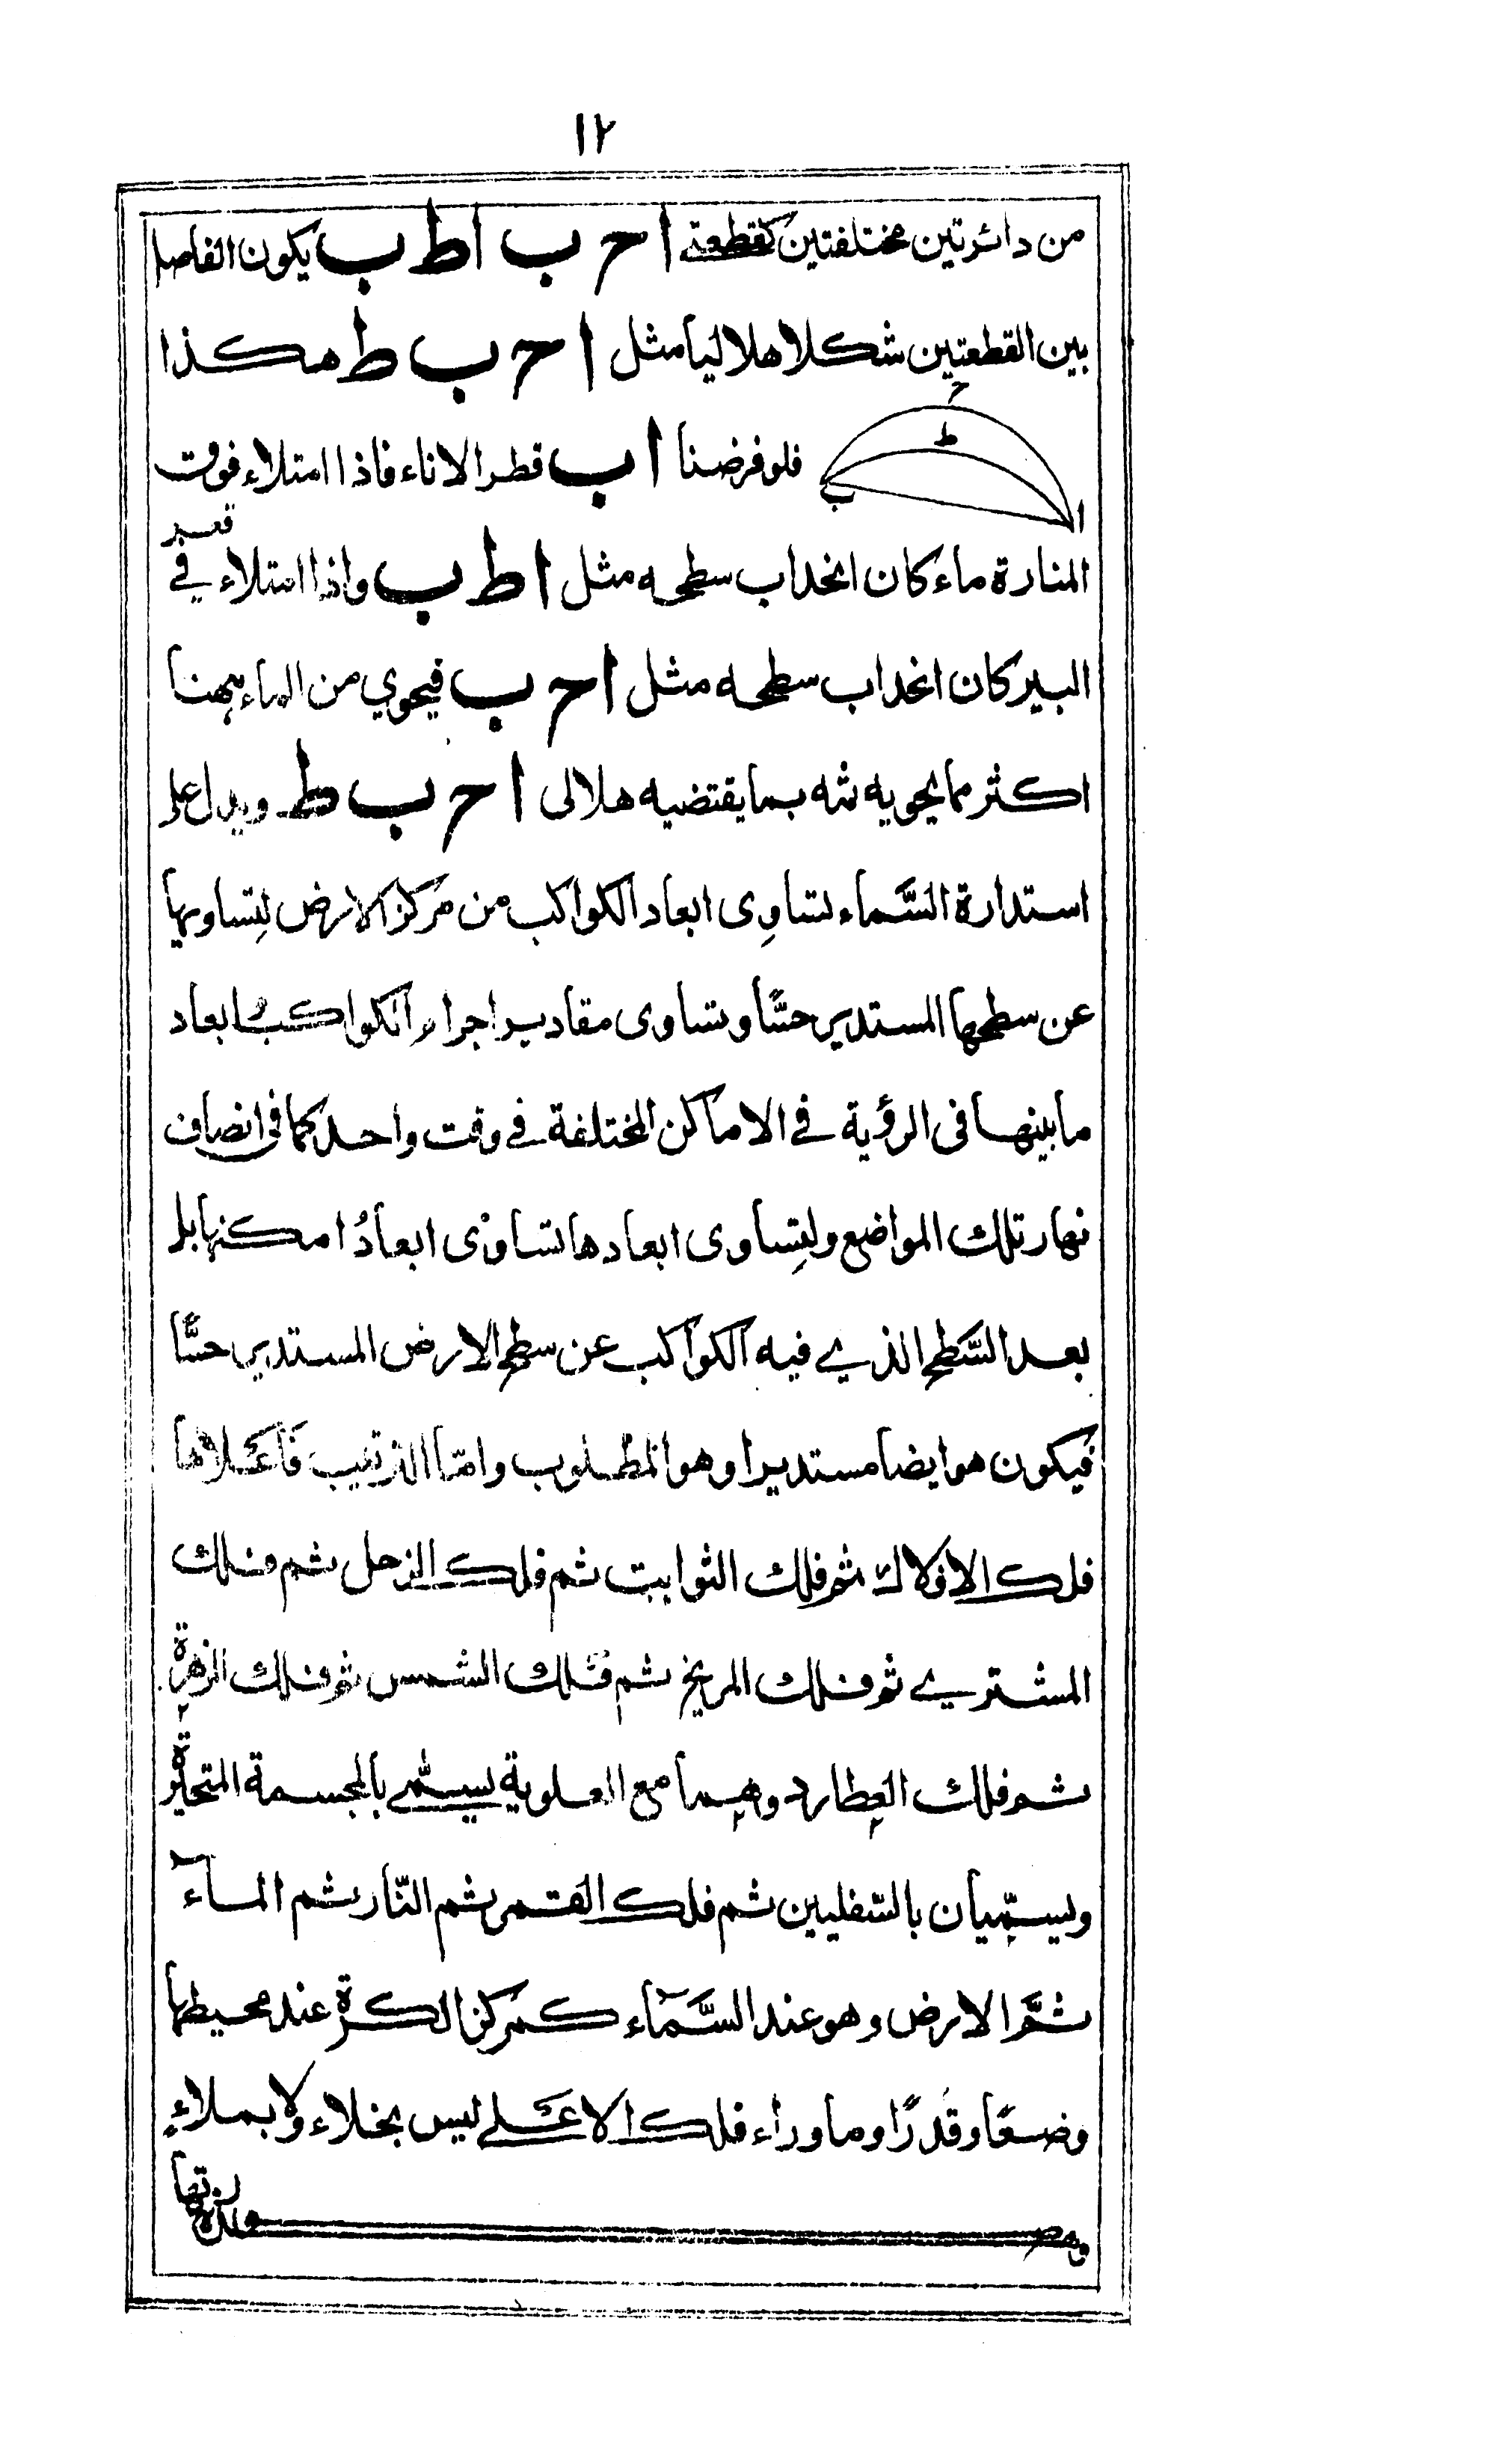 ١٢
من دائرتين مختلفتين كقطعتے ا ح ب ا ط ب يكون الفاصل
بين القطعتين شكلا هلاليا مثل ا ح ب ط هكذا
ح
ط
ب
ا
فلو فرضنا ا ب قطر الاناء فاذا امتلاء فوق
قعر
المنارة ماء كان انحداب سطحه مثل ا ط ب واذا امتلاء في
البير كان انحداب سطحه مثل ا ح ب فيحوي من الماء ههنا
اكثر مما يحويه ثمه بما يقتضيه هلالى ا ح ب ط ويدل على
استدارة السَّماء تساوِى ابعاد الكواكب من مركز الارض لِتساويها
عن سطحها المستدير حسًّا وتساوى مقادير اجرام الكواكب وابعاد
ما بينها فى الرؤية في الاماكن المختلفة في وقت واحد كما فى انصاف
نهار تلك المواضع ولتِساوى ابعادها تساوٰى ابعادُ امكنها بل
بعد السَّطح الذي فيه الكواكب عن سطح الارض المستدير حسًّا
فيكون هو ايضا مستديرا وهو المطلوب وامّا الترتيب فاَعْلاها
فلك الافلاك ثم فلك الثوابت ثم فلك الزحل ثم فلك
المشتري ثم فلك المريخ ثم فلك الشمس ثم فلك الزهرة
ثم فلك العطارد وهما مع العلوية يسمّے بالمجسمة المتحيرة
ويسمّيان بالسّفليين ثم فلك القمر ثم النّار ثم الماۤء
ثمَّ الارض وهو عند السَّمَاۤء كمركز الكرة عند محيطها
وضعًا وقَدرًا وما وراء فلك الاعْلے ليس بخلاء ولا بملاءٍ